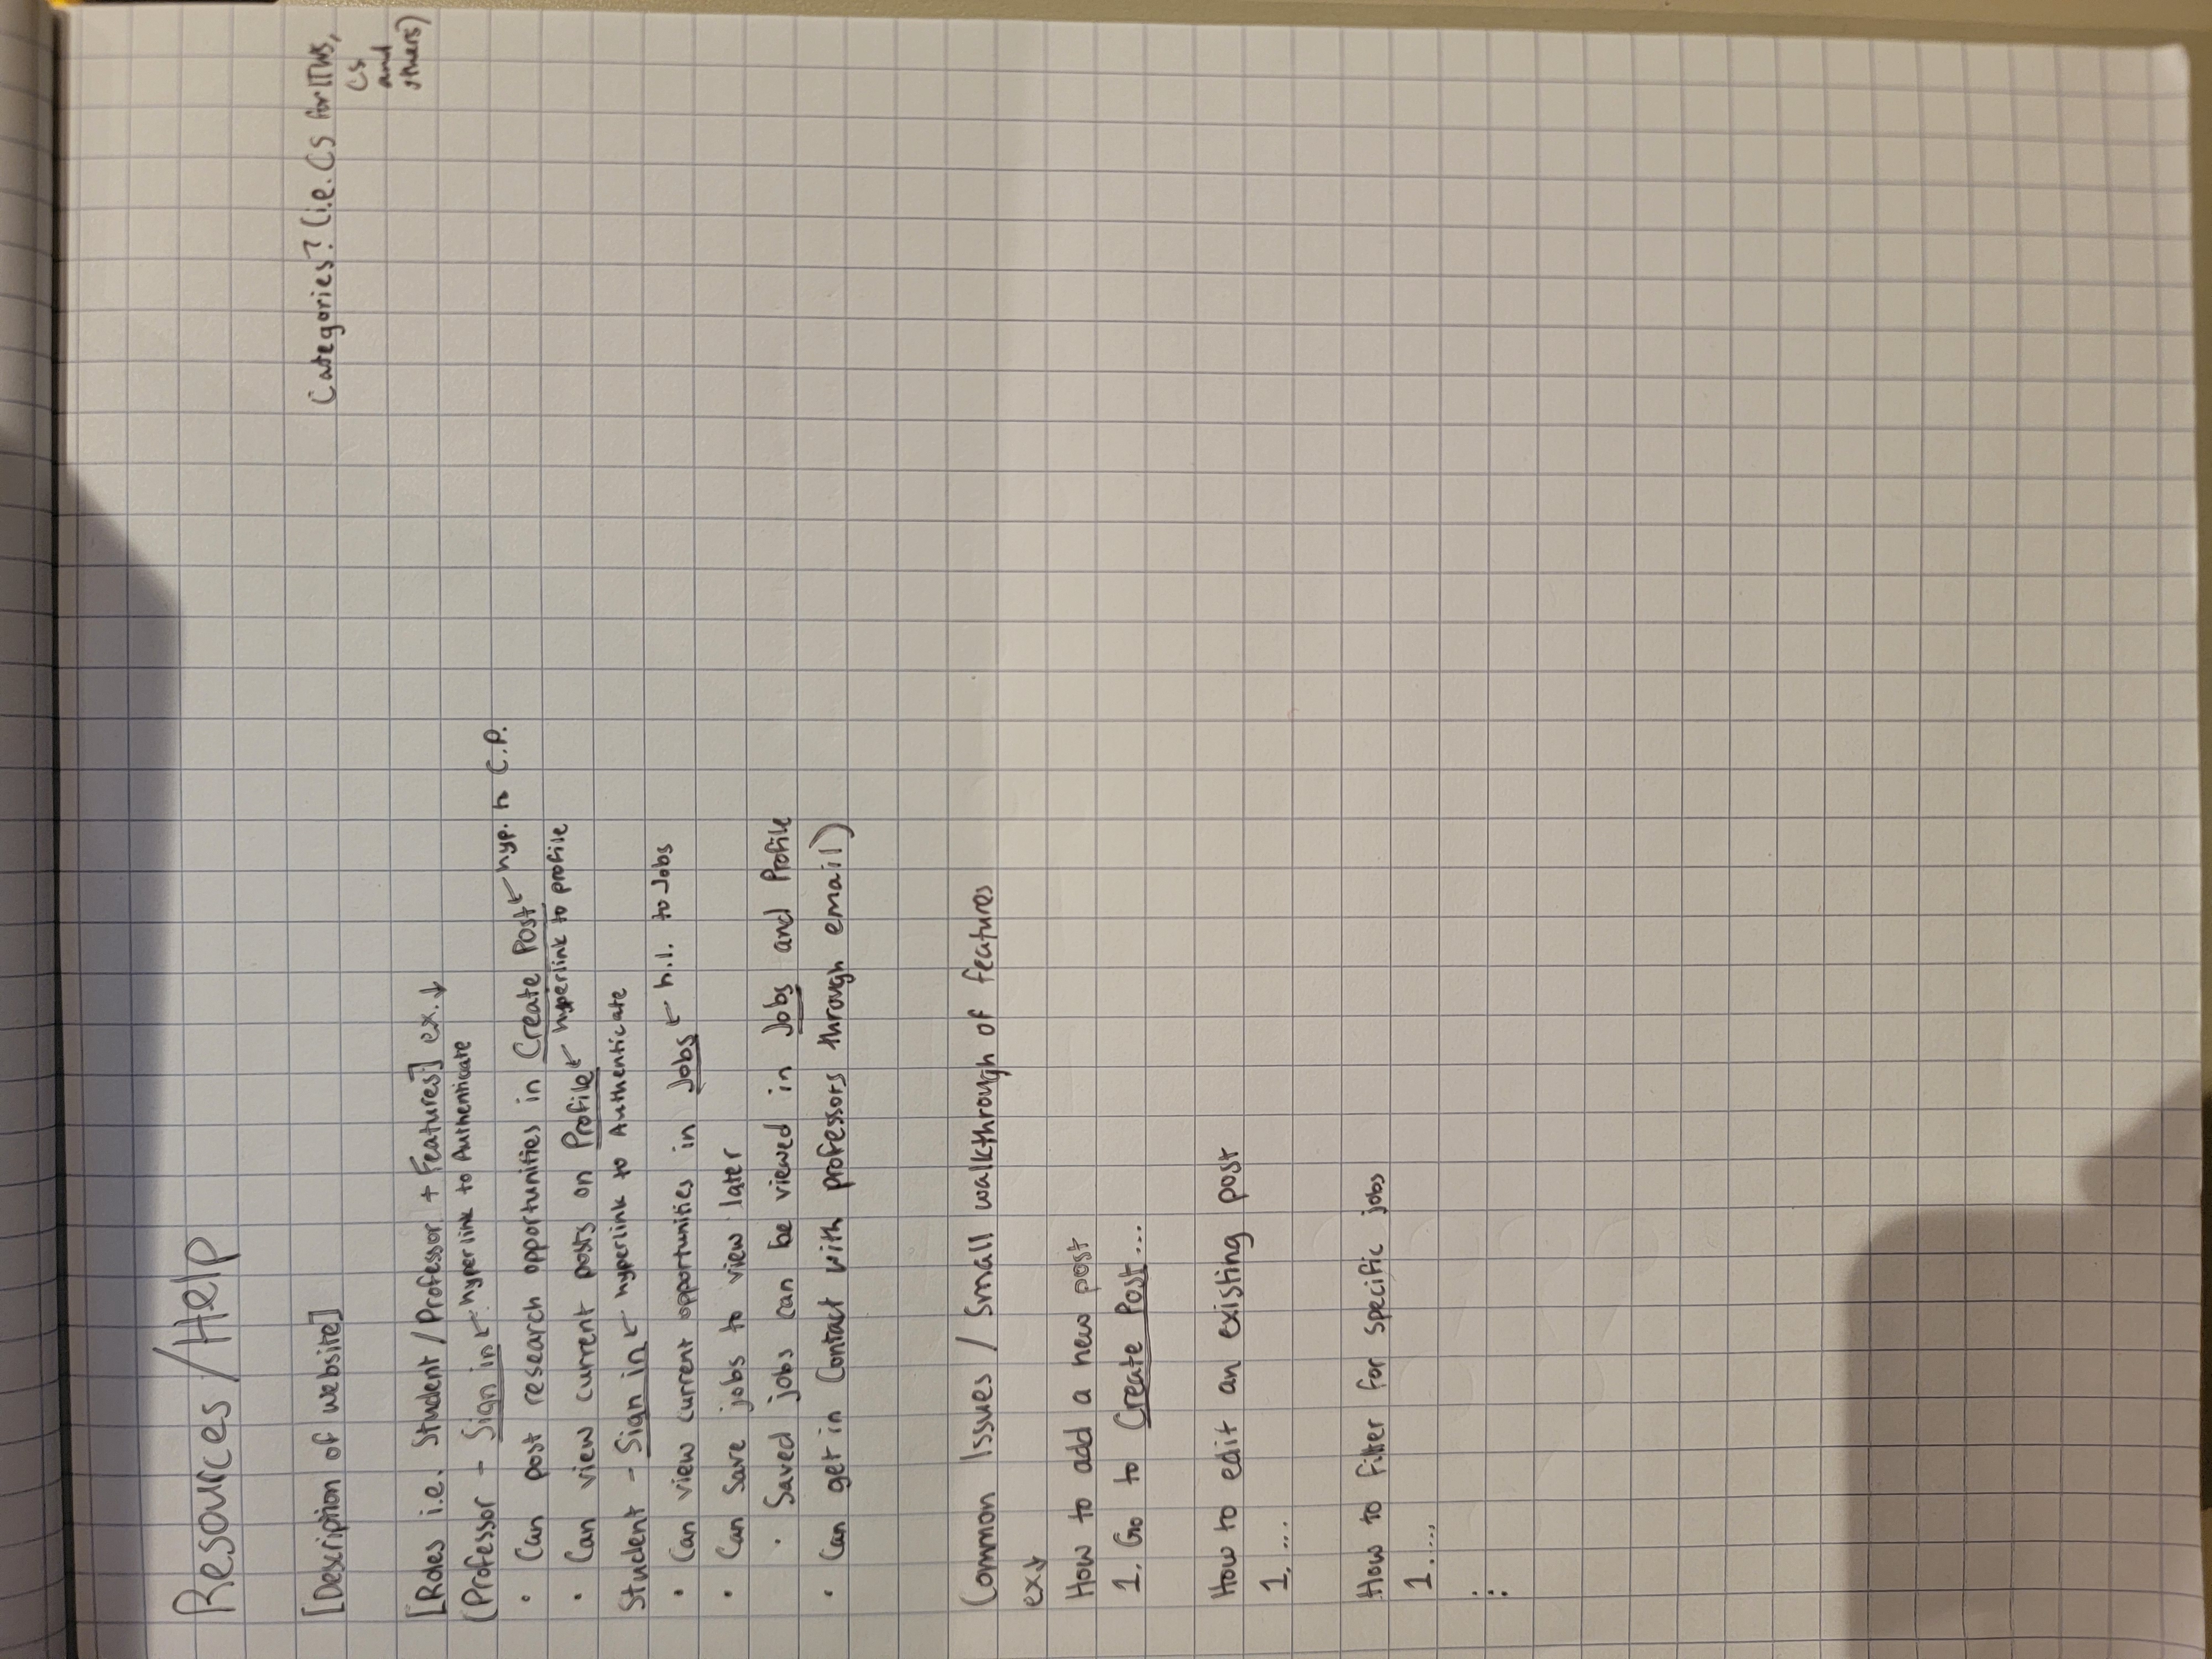 Resources/Help
[Description of website]
Categories? (i.e. CS for ITWS,
CS
and
others)
[Roles i.e. Student/Professor + Features] ex. ↓
(Professor - Sign in ← hyperlink to Authenticate
• Can post research opportunities in Create Post ← hyp. to C.P.
• Can view current posts on Profile ← hyperlink to profile
Student - Sign in ← hyperlink to Authenticate
• Can view current opportunities in Jobs ← h.l. to Jobs
• Can save jobs to view later
• Saved jobs can be viewed in Jobs and Profile
• Can get in Contact with professors through email)
Common Issues / Small walkthrough of features
ex↓
How to add a new post
1. Go to Create Post...
How to edit an existing post
1. ...
How to filter for specific jobs
1. ...
⋮